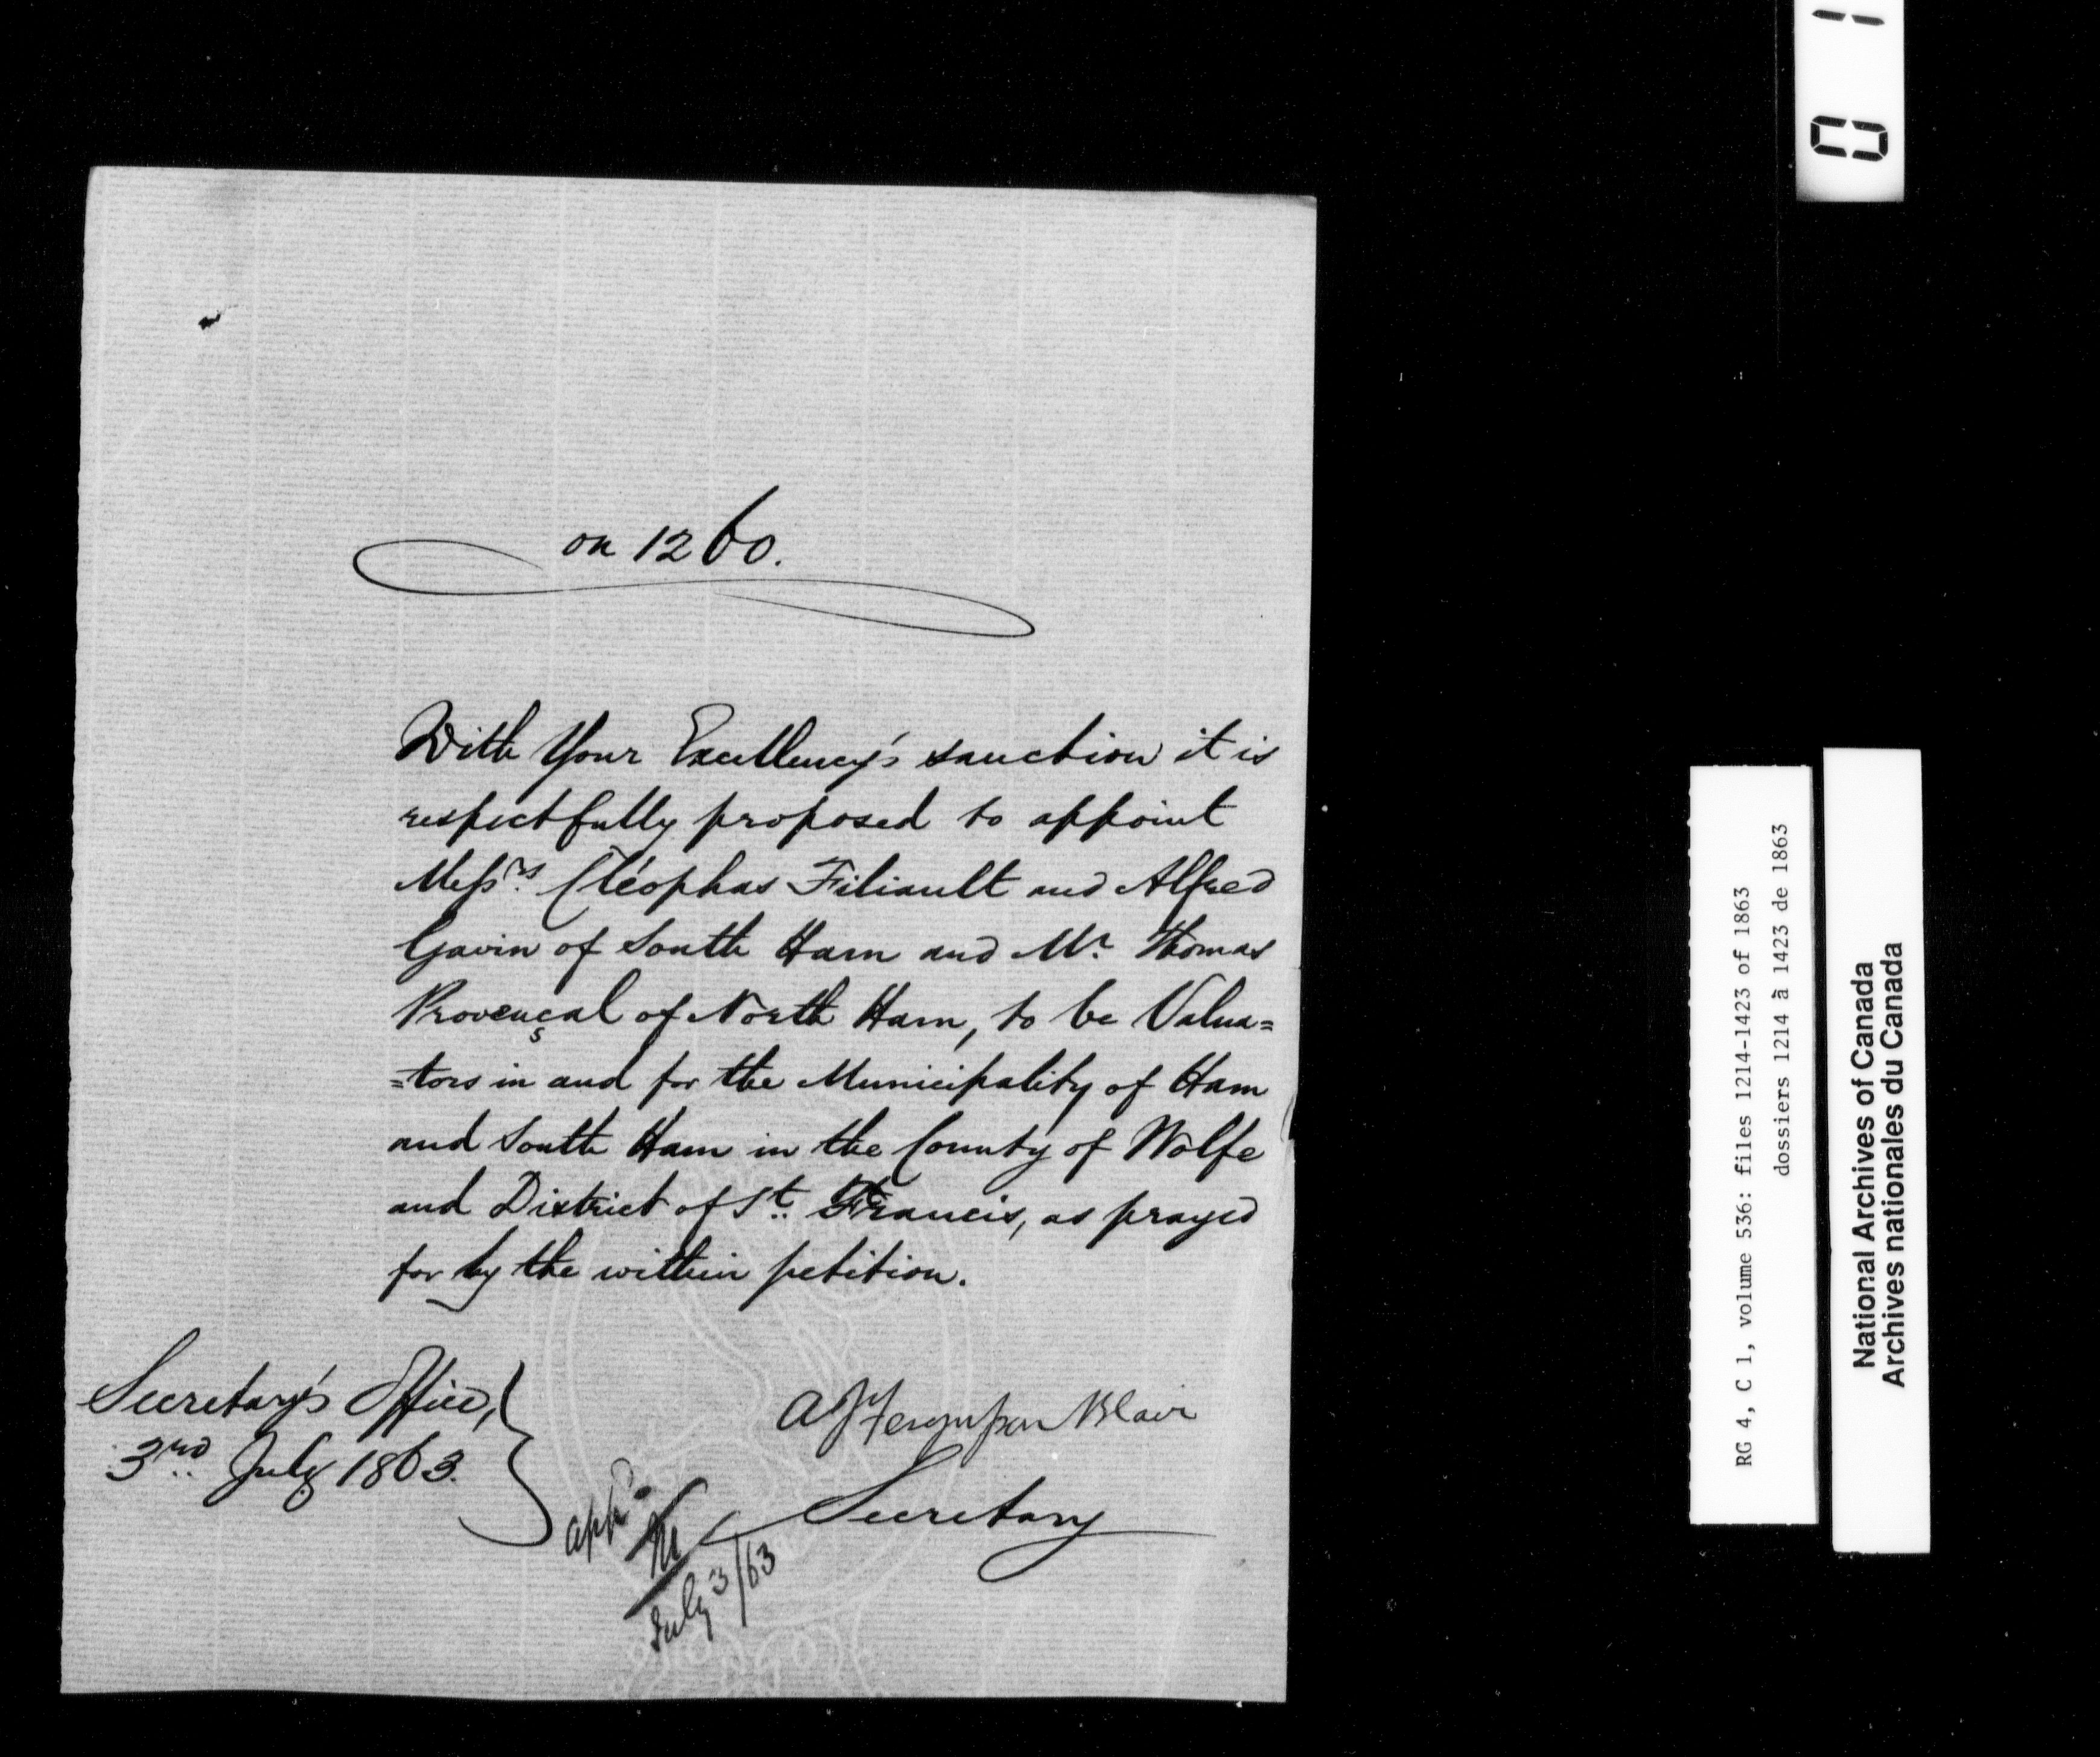 on 1260.
With Your Excellency's sanction it is
respectfully proposed to appoint
Messrs. Cléophas Filiault and Alfred
Gavin of South Ham and Mr. Thomas
Provençal of North Ham, to be Valua=
=tors in and for the Municipality of Ham
and South Ham in the County of Wolfe
and District of St. Francis, as prayed
for by the within petition.
Secretary's Office,
3rd July 1863.
A J Fergusson Blair
Secretary
appd.
M
July 3/63
0 1
RG 4, C 1, volume 536: files 1214-1423 of 1863
dossiers 1214 à 1423 de 1863
National Archives of Canada
Archives nationales du Canada